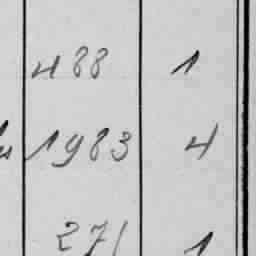 488 1
1983 4
271 1